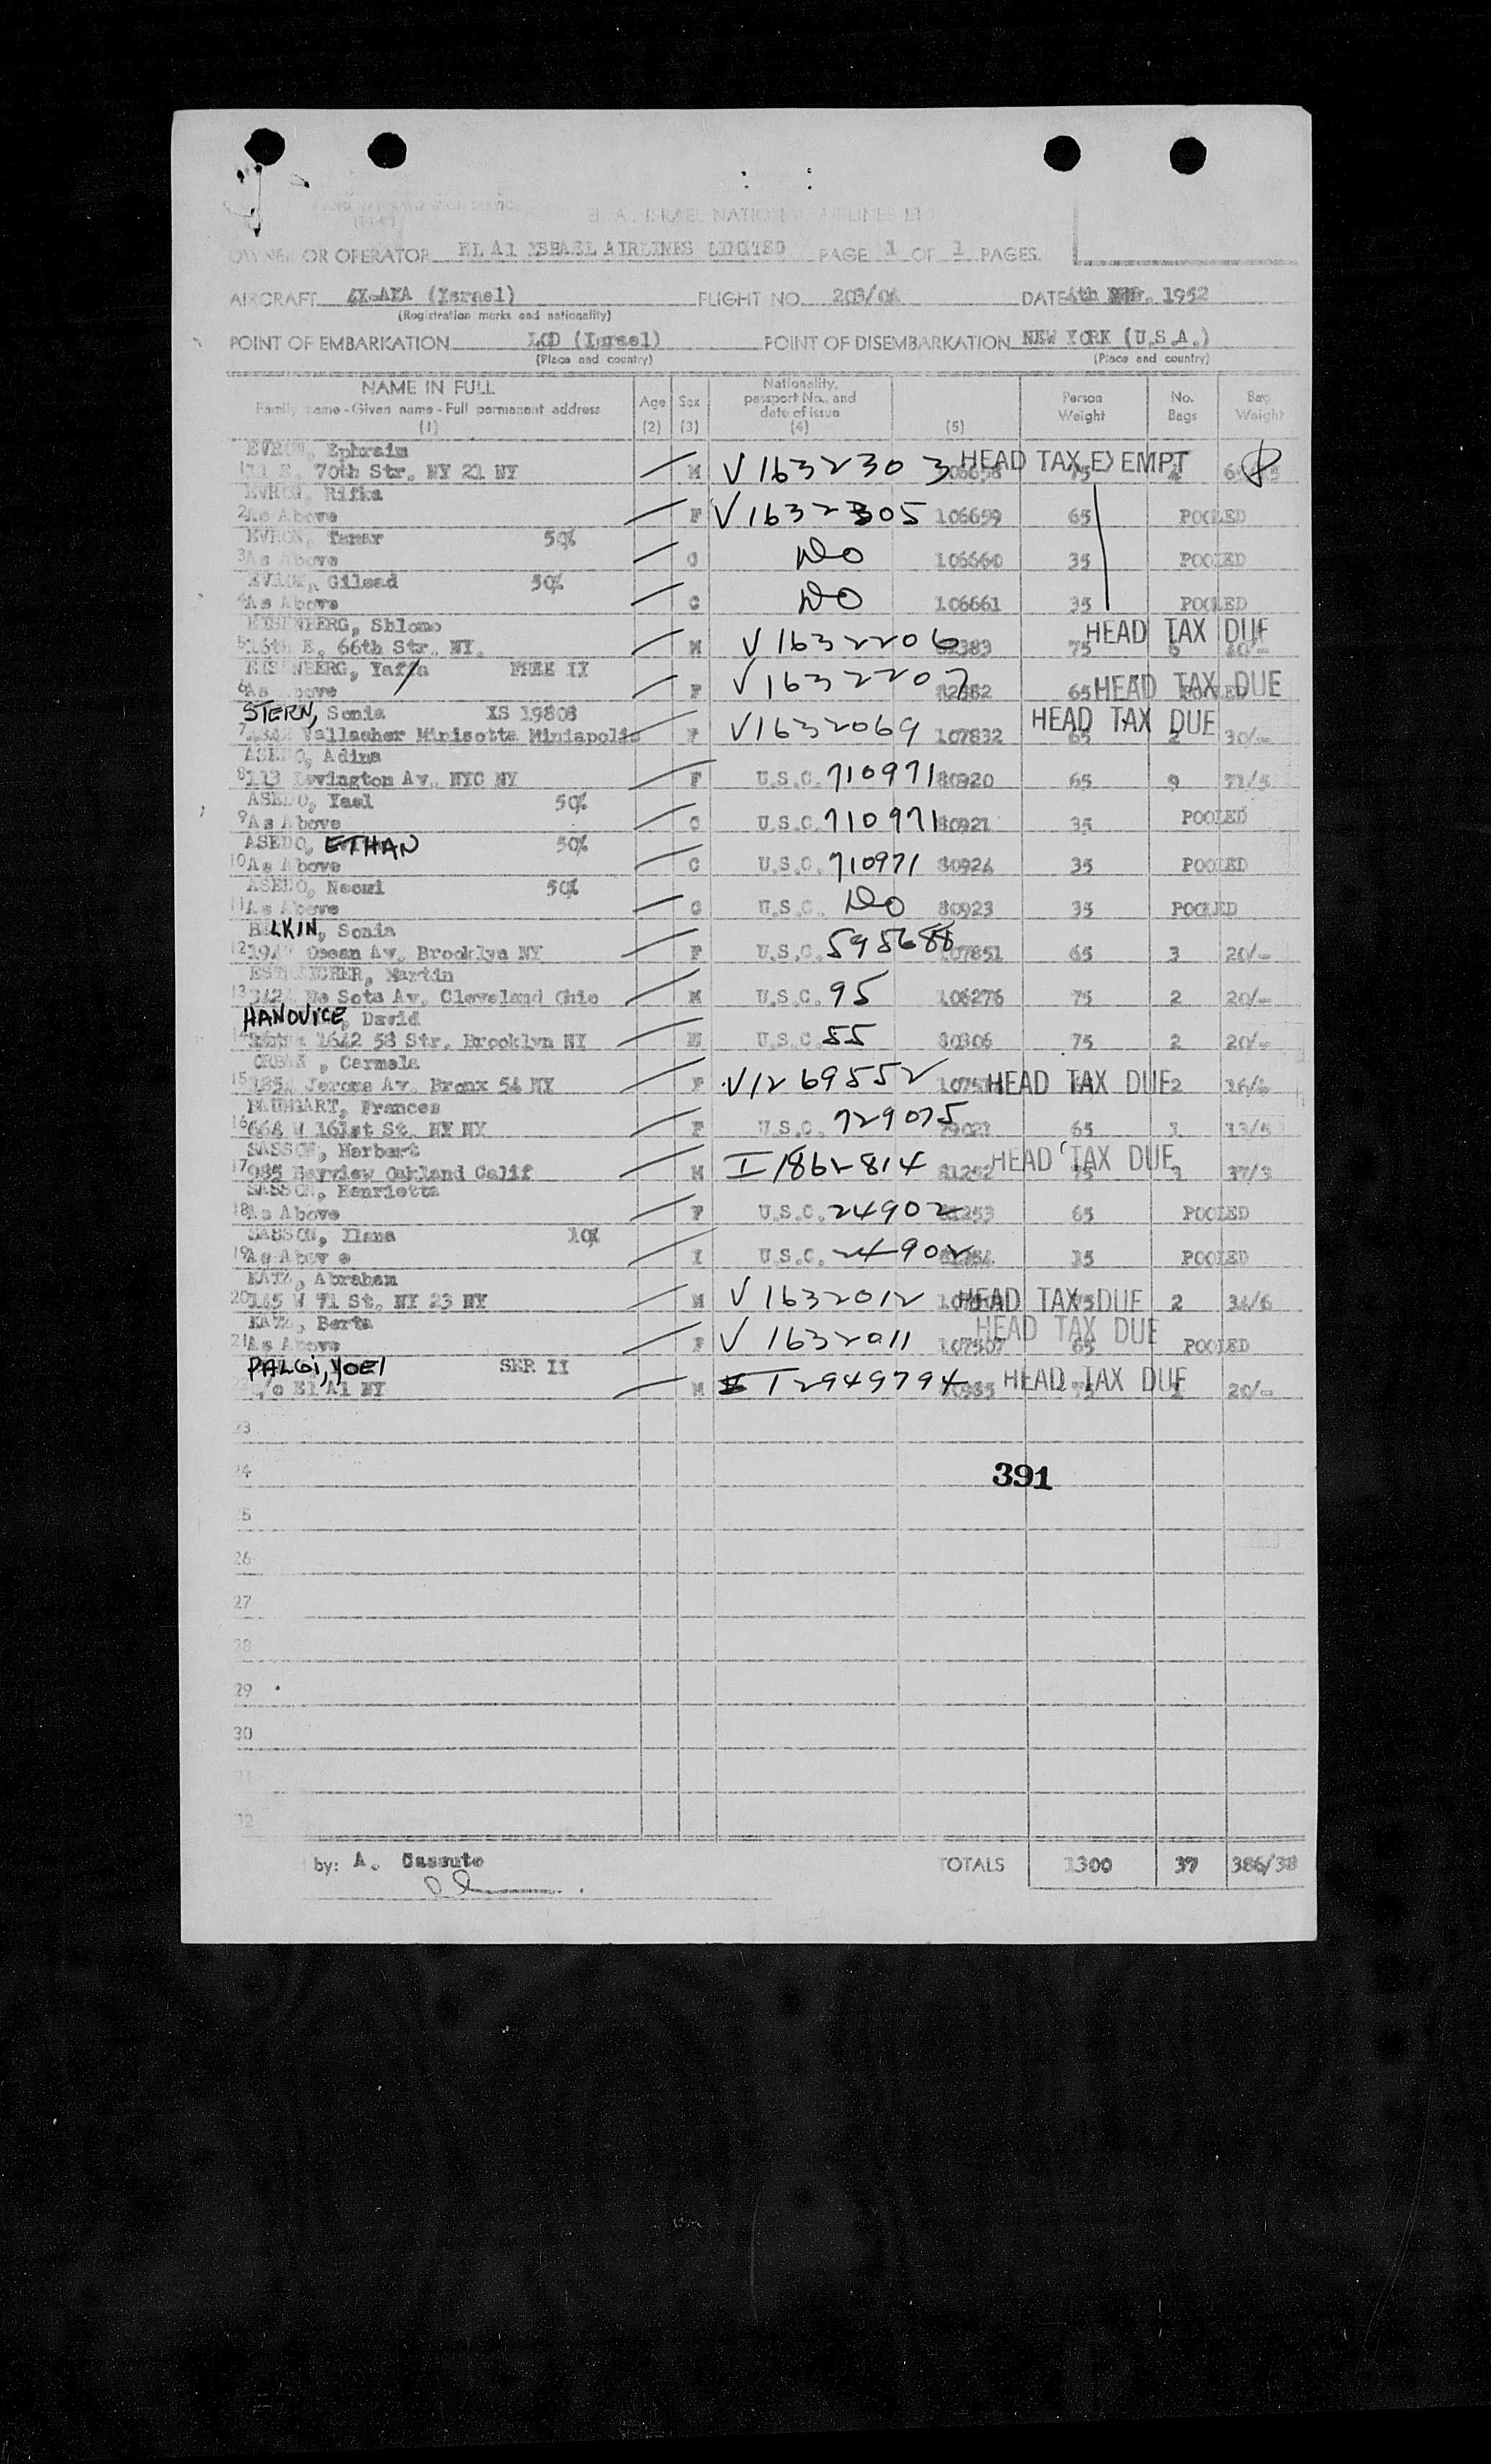 EL AL ISRAEL NATIONAL AIRLINES LTD
OWNER OR OPERATOR EL Al ISRAEL AIRLINES LIMITED PAGE 1 OF 1 PAGES.
AIRCRAFT 4X-AKA (Israel) FLIGHT NO. 203/04 DATE 4th 1952
(Registration marks and nationality)
POINT OF EMBARKATION LOD (Israel) POINT OF DISEMBARKATION NEW YORK (U.S.A.)
(Place and country) (Place and country)
NAME IN FULL Age Sex Nationality, passport No., and date of issue Person Weight No. Bags Bag Weight
Family name - Given name - Full permanent address
(1) (2) (3) (4) (5)
EVRON, Ephraim
1 11 E. 70th Str. NY 21 NY M V1632303 HEAD TAX EXEMPT 75
EVRON, Rifka
2 As Above F V1632305 106659 65 POOLED
EVRON, Tamar 50%
3 As Above C DO 106660 35 POOLED
EVRON, Gilead 50%
4 As Above C DO 106661 35 POOLED
EISENBERG, Shlomo
5 16th E. 66th Str. NY. M V1632206 82383 75 HEAD TAX DUE
EISENBERG, Yaffa FREE II
6 As Above F V1632207 82382 65 HEAD TAX DUE
STERN, Sonia XS 19808
7 Vallacher Minisotta Miniapolis F V1632069 107832 HEAD TAX DUE 65 2 30/-
ASEDO, Adina
8 113 Lexington Av. NYC NY F U.S.C. 710971 80920 65 9 71/5
ASEDO, Yael 50%
9 As Above C U.S.C. 710971 80921 35 POOLED
ASEDO, ETHAN 50%
10 As Above C U.S.C. 710971 80924 35 POOLED
ASEDO, Neomi 50%
11 As Above C U.S.C. DO 80923 35 POOLED
BELKIN, Sonia
12 Ocean Av. Brooklyn NY F U.S.C. 595688 107851 65 3 20/-
ESTREICHER, Martin
13 De Sota Av. Cleveland Ohio M U.S.C. 95 106276 75 2 20/-
HANOVICE, David
14 1642 58 Str. Brooklyn NY M U.S.C. 55 80306 75 2 20/-
, Carmela
15 Jerome Av. Bronx 54 NY F V1269552 HEAD TAX DUE 2
BAUMGART, Frances
16 664 W 161st St. NY NY F U.S.C. 729075 79021 65 1 13/5
SASSON, Herbert
17 985 Bayview Oakland Calif M I1862814 81252 HEAD TAX DUE 75 3 37/3
SASSON, Henrietta
18 As Above F U.S.C. 24902 81253 65 POOLED
SASSON, Ilana 10%
19 As Above I U.S.C. 24902 POOLED
KATZ, Abraham
20 145 W 71 St. NY 23 NY M V1632012 HEAD TAX DUE 75 2 34/6
KATZ, Berta
21 As Above F V1632011 107507 HEAD TAX DUE 65 POOLED
PALGI, YOEl SER II
c/o El Al NY M I2949794 HEAD TAX DUE 75 20/-
23
24 391
25
26
27
28
29
30
31
32
by: A. Cassuto TOTALS 1300 37 386/38